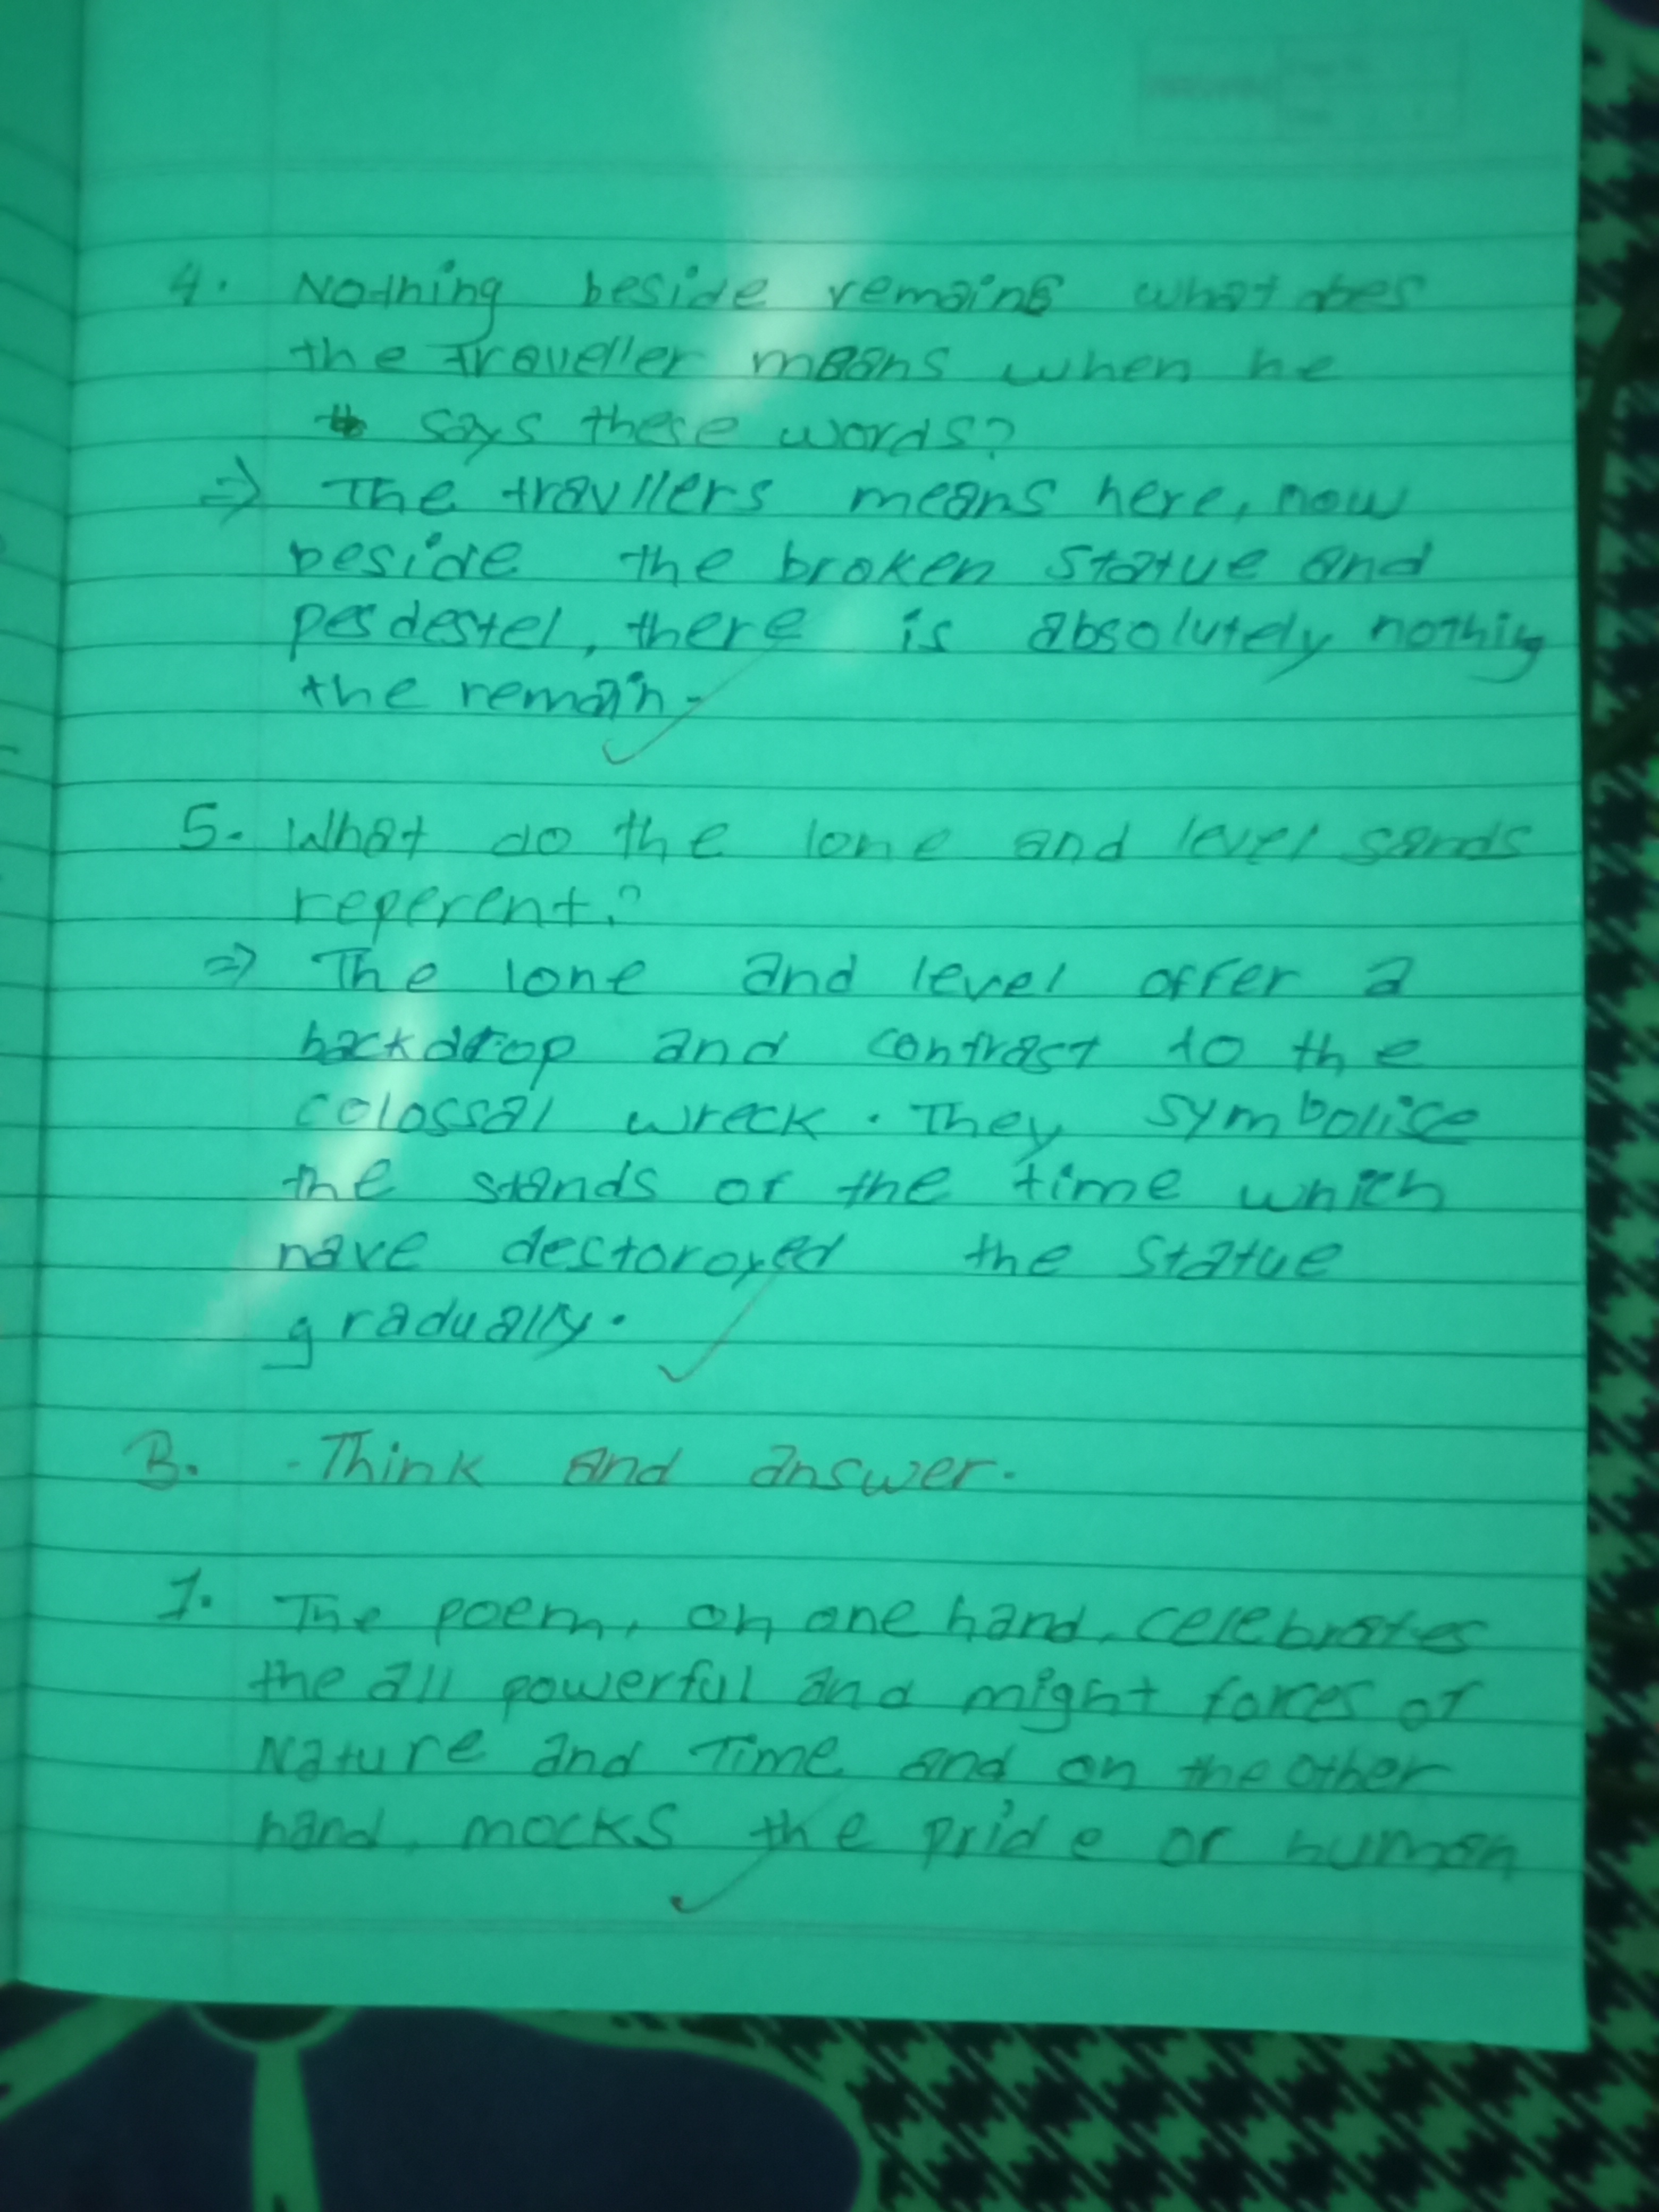 4. Nothing beside remains what does
the traveller means when he
says these words?
⇒ The travllers means here, now
beside the broken statue and
pesdestel, there is absolutely nothing
the remain.
5. What do the lone and level sands
reperent?
⇒ The lone and level offer a
backdrop and contrast to the
colossal wreck. They symbolise
the stands of the time which
have dectoroyed the statue
gradually.
B. Think and answer.
1. The poem, on one hand, celebrates
the all powerful and might forces of
Nature and Time and on the other
hand, mocks the pride of human